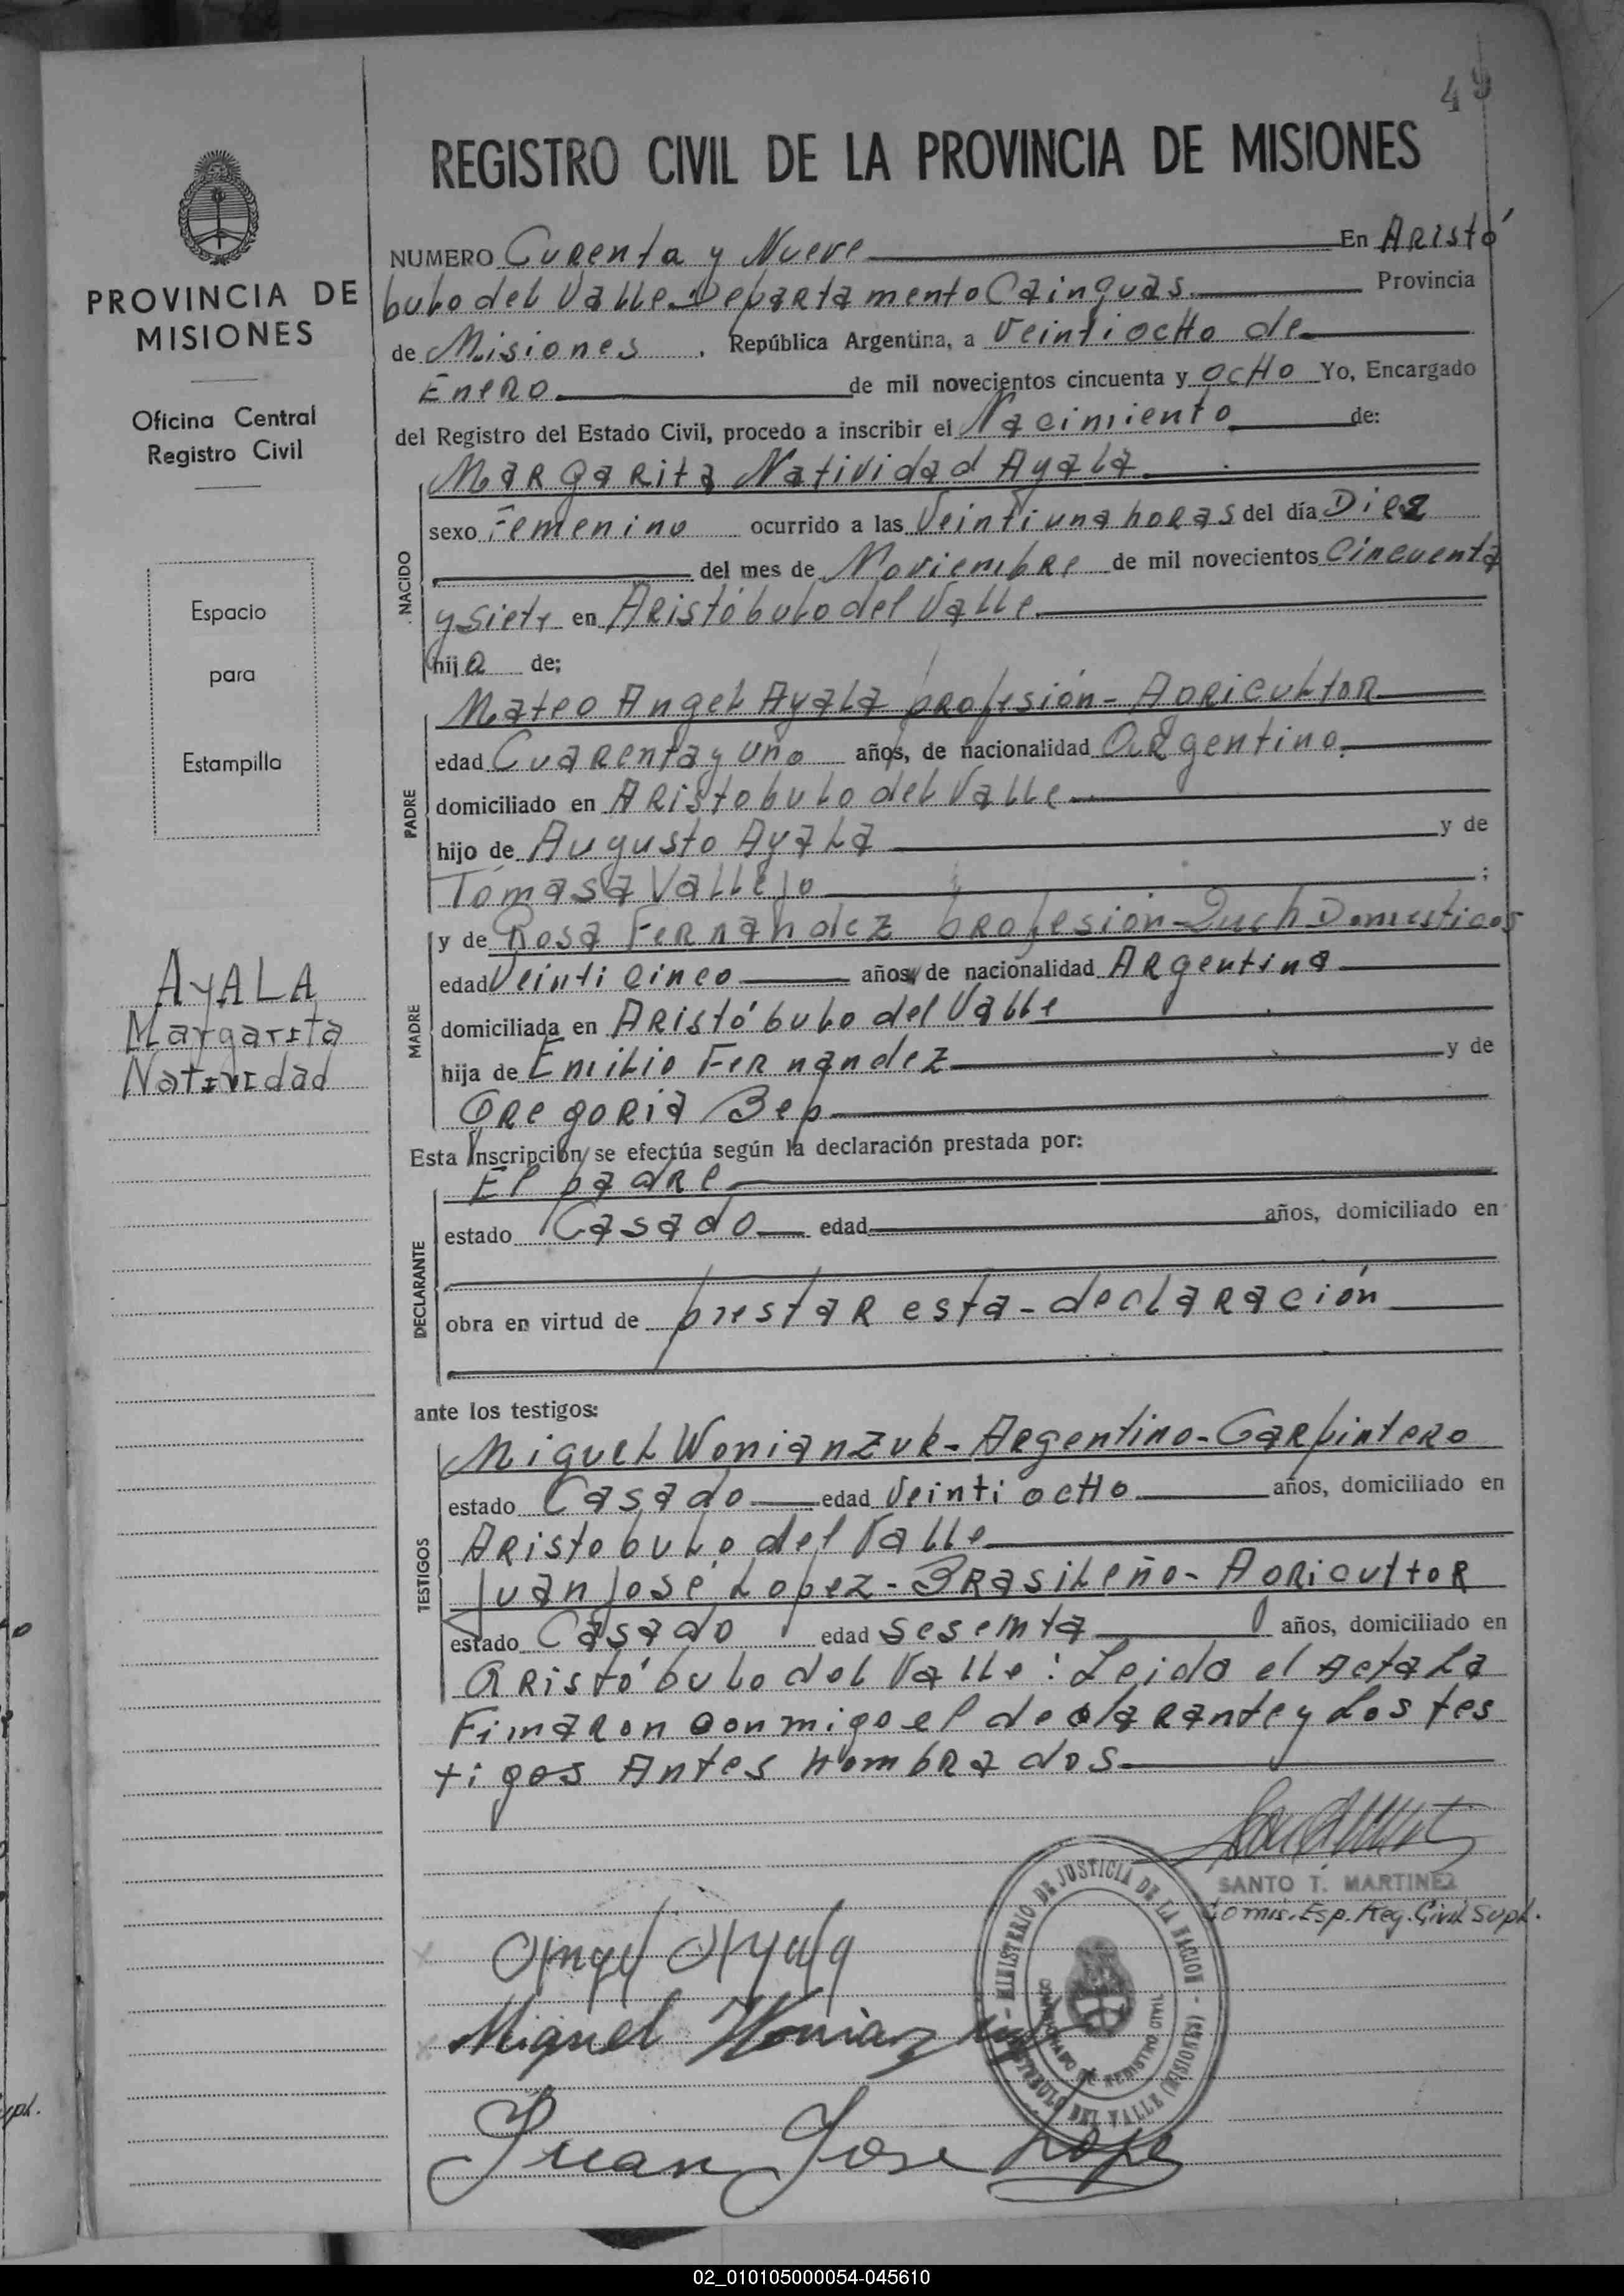 49
REGISTRO CIVIL DE LA PROVINCIA DE MISIONES
PROVINCIA DE
MISIONES
Oficina Central
Registro Civil
Espacio
para
Estampilla
AyALA
Margarita
Natividad
NUMERO Curenta y Nueve En Aristó
bulo del Valle Departamento Cainguas. Provincia
de Misiones. República Argentina, a Veintiocho de
Enero de mil novecientos cincuenta y ocho Yo, Encargado
del Registro del Estado Civil, procedo a inscribir el Nacimiento de:
NACIDO
Margarita Natividad Ayala
sexo Femenino ocurrido a las Veintiuna horas del día Diez
del mes de Noviembre de mil novecientos Cincuenta
y siete en Aristóbulo del Valle.
hija de:
PADRE
Mateo Angel Ayala profesión - Agricultor
edad Cuarenta y uno años, de nacionalidad Argentino.
domiciliado en Aristobulo del Valle
hijo de Augusto Ayala y de
Tomasa Vallejo ;
MADRE
y de Rosa Fernandez profesión - Domesticos
edad Veinticinco años, de nacionalidad Argentina
domiciliada en Aristóbulo del Valle
hija de Emilio Fernandez y de
Gregoria Bep
Esta inscripción se efectúa según la declaración prestada por:
DECLARANTE
El padre
estado Casado edad años, domiciliado en
obra en virtud de prestar esta - declaración
ante los testigos:
TESTIGOS
Miguel Wonianzuk - Argentino - Carpintero
estado Casado edad Veintiocho años, domiciliado en
Aristobulo del Valle
Juan José Lopez - Brasileño - Agricultor
estado Casado edad Sesenta años, domiciliado en
Aristóbulo del Valle: Leida el Acta La
Fimaron conmigo el declarante y Los tes
tigos Antes nombrados
SANTO T. MARTINEZ
Comis. Esp. Reg. Civil Supl.
Angel Ayala
MINISTERIO DE JUSTICIA DE LA NACION - ARISTOBULO DEL VALLE (MISIONES) -
DE REGISTRO CIVIL
Miguel
Juan Jose Lope
02_010105000054-045610